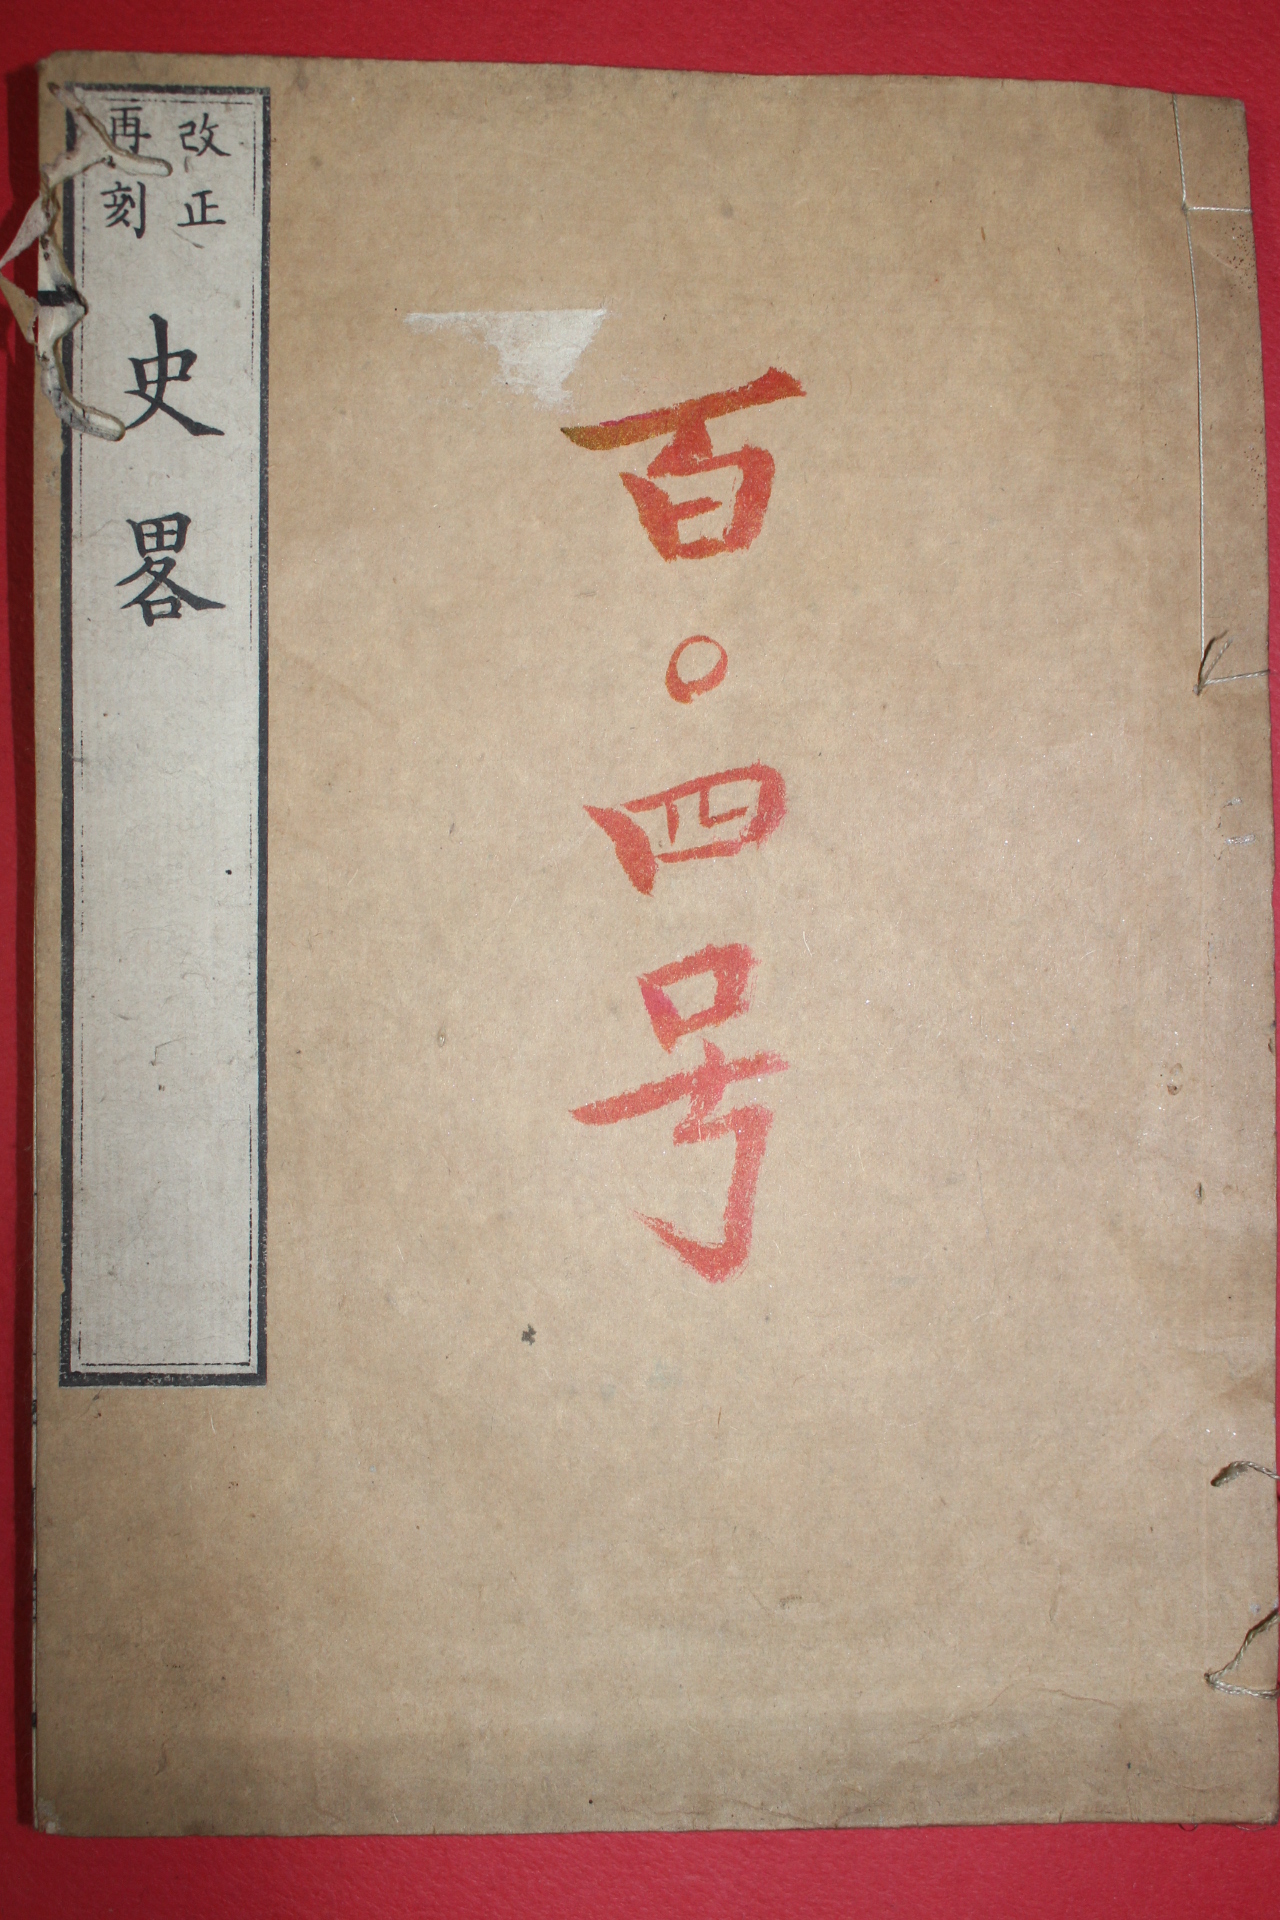 百〇四号
改正
再刻
史畧